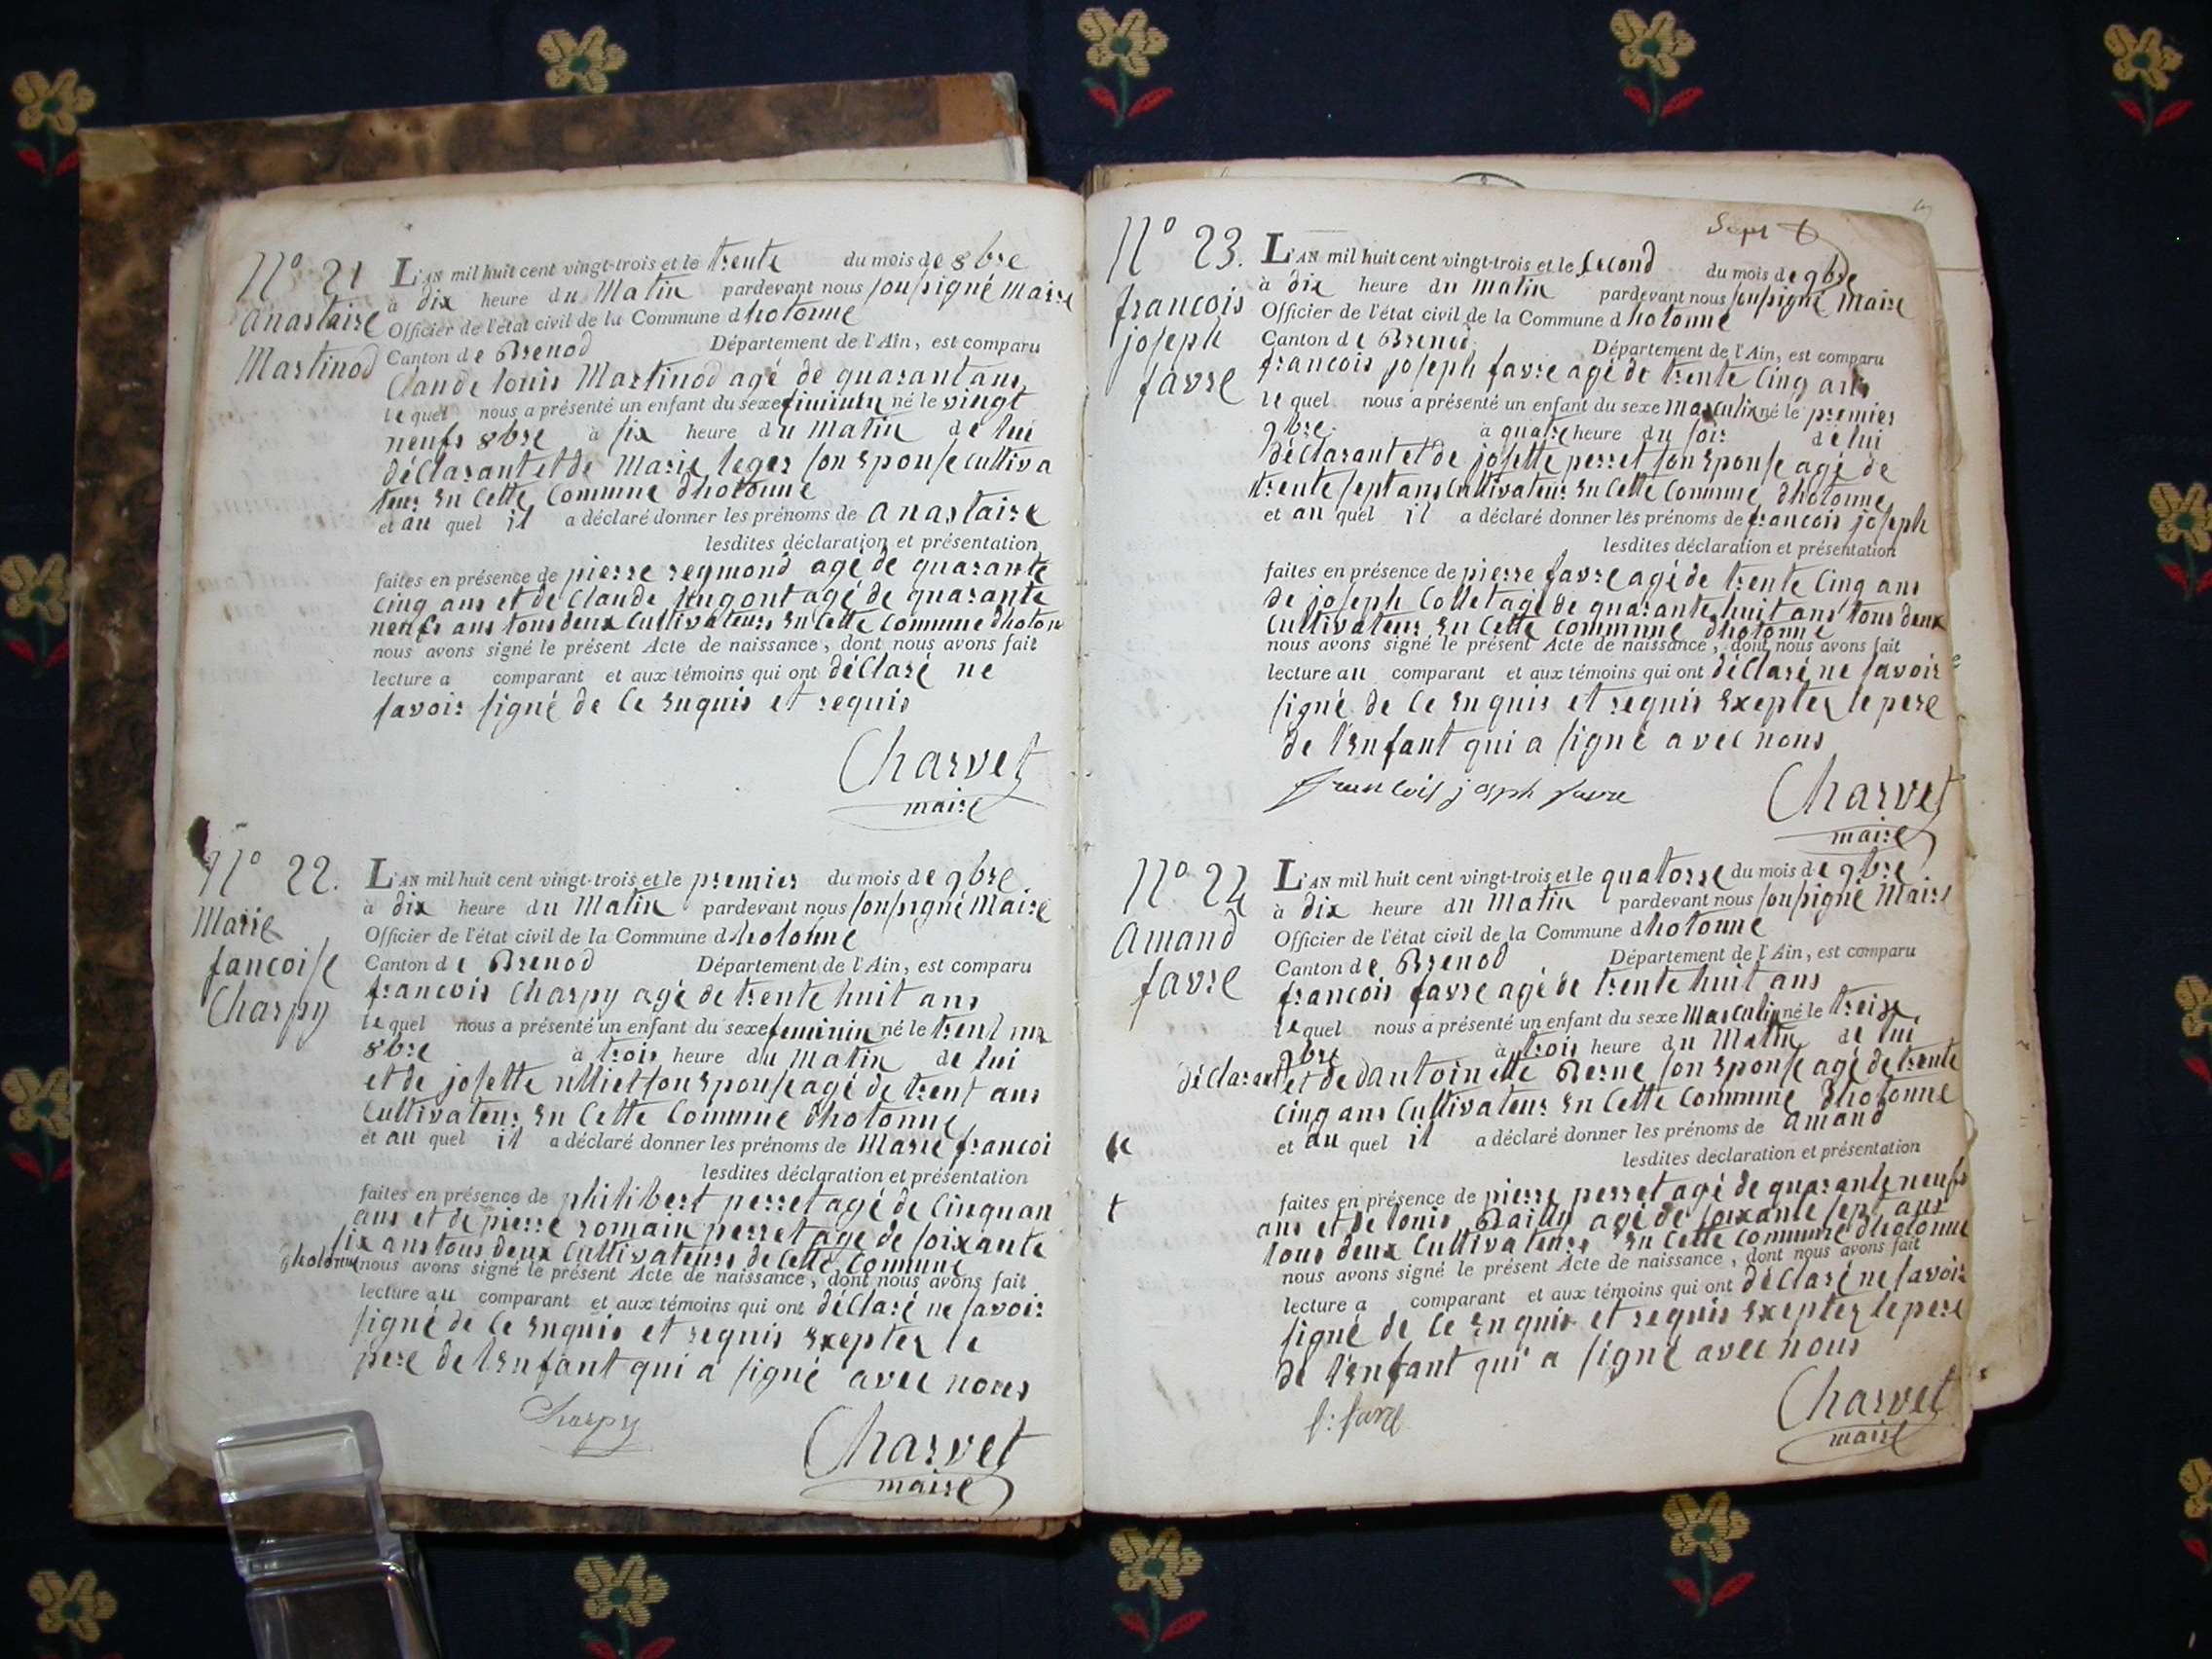 N° 21
anastaise
Martinod
L'AN mil huit cent vingt-trois et le trente du mois de 8bre
à dix heure du Matin pardevant nous soussigné Maire
Officier de l'état civil de la Commune d hotonne
Canton de Brenod Département de l'Ain, est comparu
Claude louis Martinod agé de quarant ans
le quel nous a présenté un enfant du sexe feminin né le vingt
neufs 8bre à six heure du Matin de lui
déclarant et de Marie leger son Epouse cultiva
teur En Cette Commune dhotonne
et au quel il a déclaré donner les prénoms de anastaise
lesdites déclaration et présentation
faites en présence de pierre reymond agé de quarante
cinq ans et de Claude agé de quarante
neufs ans tous deux Cultivateurs En Cette Commune dhoton
nous avons signé le présent Acte de naissance, dont nous avons fait
lecture a comparant et aux témoins qui ont déclaré ne
savoir signé de Ce Enquis et requis
Charvet
maire
N° 22.
Marie
fancoise
Charpy
L'AN mil huit cent vingt-trois et le premier du mois de 9bre
à dix heure du Matin pardevant nous soussigné Maire
Officier de l'état civil de la Commune d hotonne
Canton de Brenod Département de l'Ain, est comparu
francois Charpy agé de trente huit ans
le quel nous a présenté un enfant du sexe feminin né le trent un
8bre à trois heure du Matin de lui
et de josette ulliet son Epouse agé de trent ans
Cultivateur En Cette Commune dhotonne
et au quel il a déclaré donner les prénoms de Marie francoi
lesdites déclaration et présentation
faites en présence de philibert perret agé de Cinquan
ans et de pierre romain perret agé de soixante
six ans tous deux Cultivateurs de Cette Commune
dhotonne nous avons signé le présent Acte de naissance, dont nous avons fait
lecture au comparant et aux témoins qui ont déclaré ne savoir
signé de Ce Enquis et requis Exeptez le
pere de lEnfant qui a signé avec nous
Charpy
Charvet
maire
Sept
N° 23.
francois
joseph
favre
L'AN mil huit cent vingt-trois et le second du mois de 9bre
à dix heure du matin pardevant nous soussigné Maire
Officier de l'état civil de la Commune d hotonne
Canton de Brenod Département de l'Ain, est comparu
francois joseph favre agé de trente Cinq ans
le quel nous a présenté un enfant du sexe Masculin né le premier
9bre à quatre heure du soir de lui
déclarant et de josette perret son Epouse agé de
trente sept ans Cultivateur En Cette Commune dhotonne
et au quel il a déclaré donner les prénoms de francois joseph
lesdites déclaration et présentation
faites en présence de pierre favre agé de trente Cinq ans
de joseph Collet agé de quarante huit ans tous deux
Cultivateur En Cette Commune dhotonne
nous avons signé le présent Acte de naissance, dont nous avons fait
lecture au comparant et aux témoins qui ont déclaré ne savoir
signé de Ce Enquis et requis Exeptez le pere
de lEnfant qui a signé avec nous
francois joseph favre
Charvet
maire
N° 24
amand
favre
L'AN mil huit cent vingt-trois et le quatorse du mois de 9bre
à dix heure du Matin pardevant nous soussigné Maire
Officier de l'état civil de la Commune d hotonne
Canton de Brenod Département de l'Ain, est comparu
francois favre agé de trente huit ans
le quel nous a présenté un enfant du sexe Masculin né le treise
9bre à trois heure du Matin de lui
déclarant et de dantoinette Berne son Epouse agé de trente
cinq ans Cultivateur En Cette Commune dhotonne
et au quel il a déclaré donner les prénoms de amand
lesdites déclaration et présentation
faites en présence de pierre perret agé de quarante neufs
ans et de louis Bailly agé de soixante sept ans
tous deux Cultivateurs En Cette Commune dhotonne
nous avons signé le présent Acte de naissance, dont nous avons fait
lecture a comparant et aux témoins qui ont déclaré ne savoir
signé de Ce Enquis et requis Exeptez le pere
de lEnfant qui a signé avec nous
f: favre
Charvet
maire